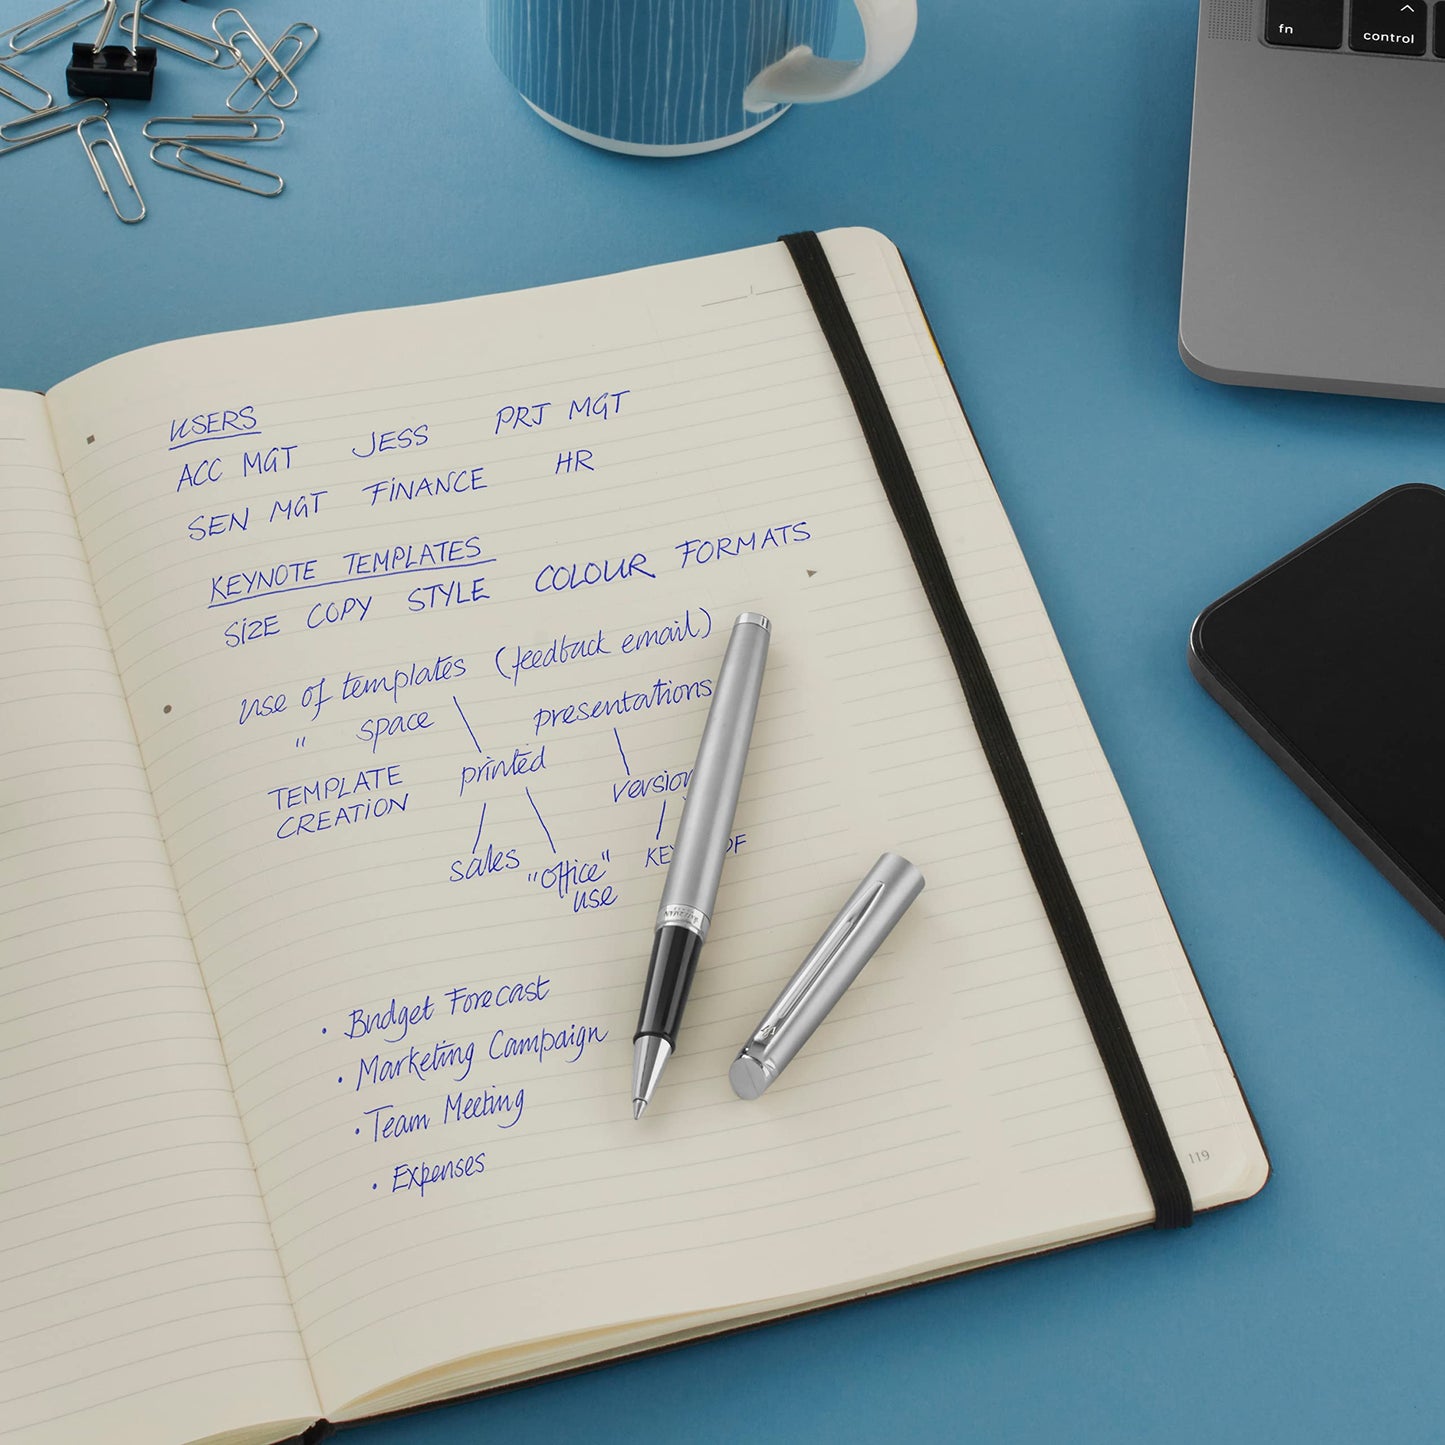 fn
control
USERS
ACC MGT JESS PRJ MGT
SEN MGT FINANCE HR
KEYNOTE TEMPLATES
SIZE COPY STYLE COLOUR FORMATS
use of templates (feedback email)
" space presentations
TEMPLATE printed version
CREATION
sales "office" KE DF
use
• Budget Forecast
• Marketing Campaign
• Team Meeting
• Expenses
119